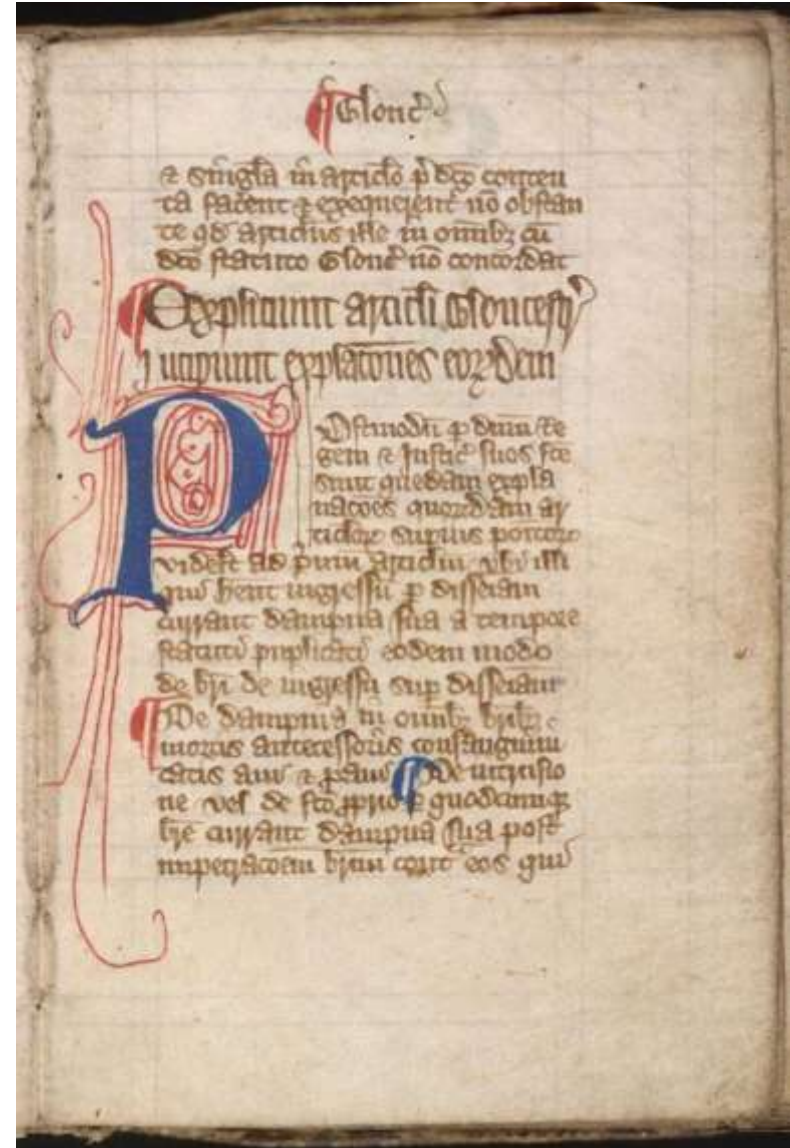 ¶ Glouc̃
& singl̃a in articl̃o p̃ dc̃o conten
ta facent & exequerent̃ nõ obstan
te qd̃ articl̃us ille in omĩbꝫ cũ
dc̃o statuto Glouc̃ nõ concordat
¶ Expliciunt articl̃i Gloucestr̃
Incipiunt explac̃ones eoꝝdem
Postmodũ ꝑ dñm Re
gem & Justic̃ suos fc̃e
sunt quedam expla
nac̃ões quorũdam ar
ticl̃oꝝ supius poit̃oꝝ
videl̃t ad p̃imũ articl̃m vbi illi
qui h̃ent ingressũ ꝑ disseiam
currant dampna sua a tempore
statuti puplicati eodem modo
de br̃i de ingressũ sup disseiam
¶ De dampnis in omĩbꝫ br̃ibꝫ
mortis antecessoris consanguini
tatis aui & ꝓaui ¶ De intrusio
ne vel de fc̃o ꝓprio ꝑ quodcumqꝫ
br̃e currant dampna sua post
impetrac̃oem br̃ium cont̃ eos qui